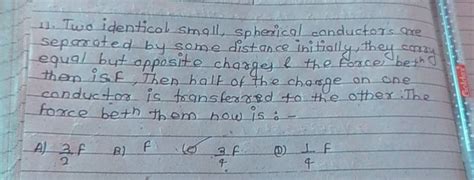 11. Two identical small, spherical conductors are
separated by some distance initially, they carry
equal but opposite charges & the force betn
them is F, Then half of the charge on one
conductor is transferred to the other. The
force betn them now is : -
A) 3/2 F B) F (C) 3/4 F (D) 1/4 F